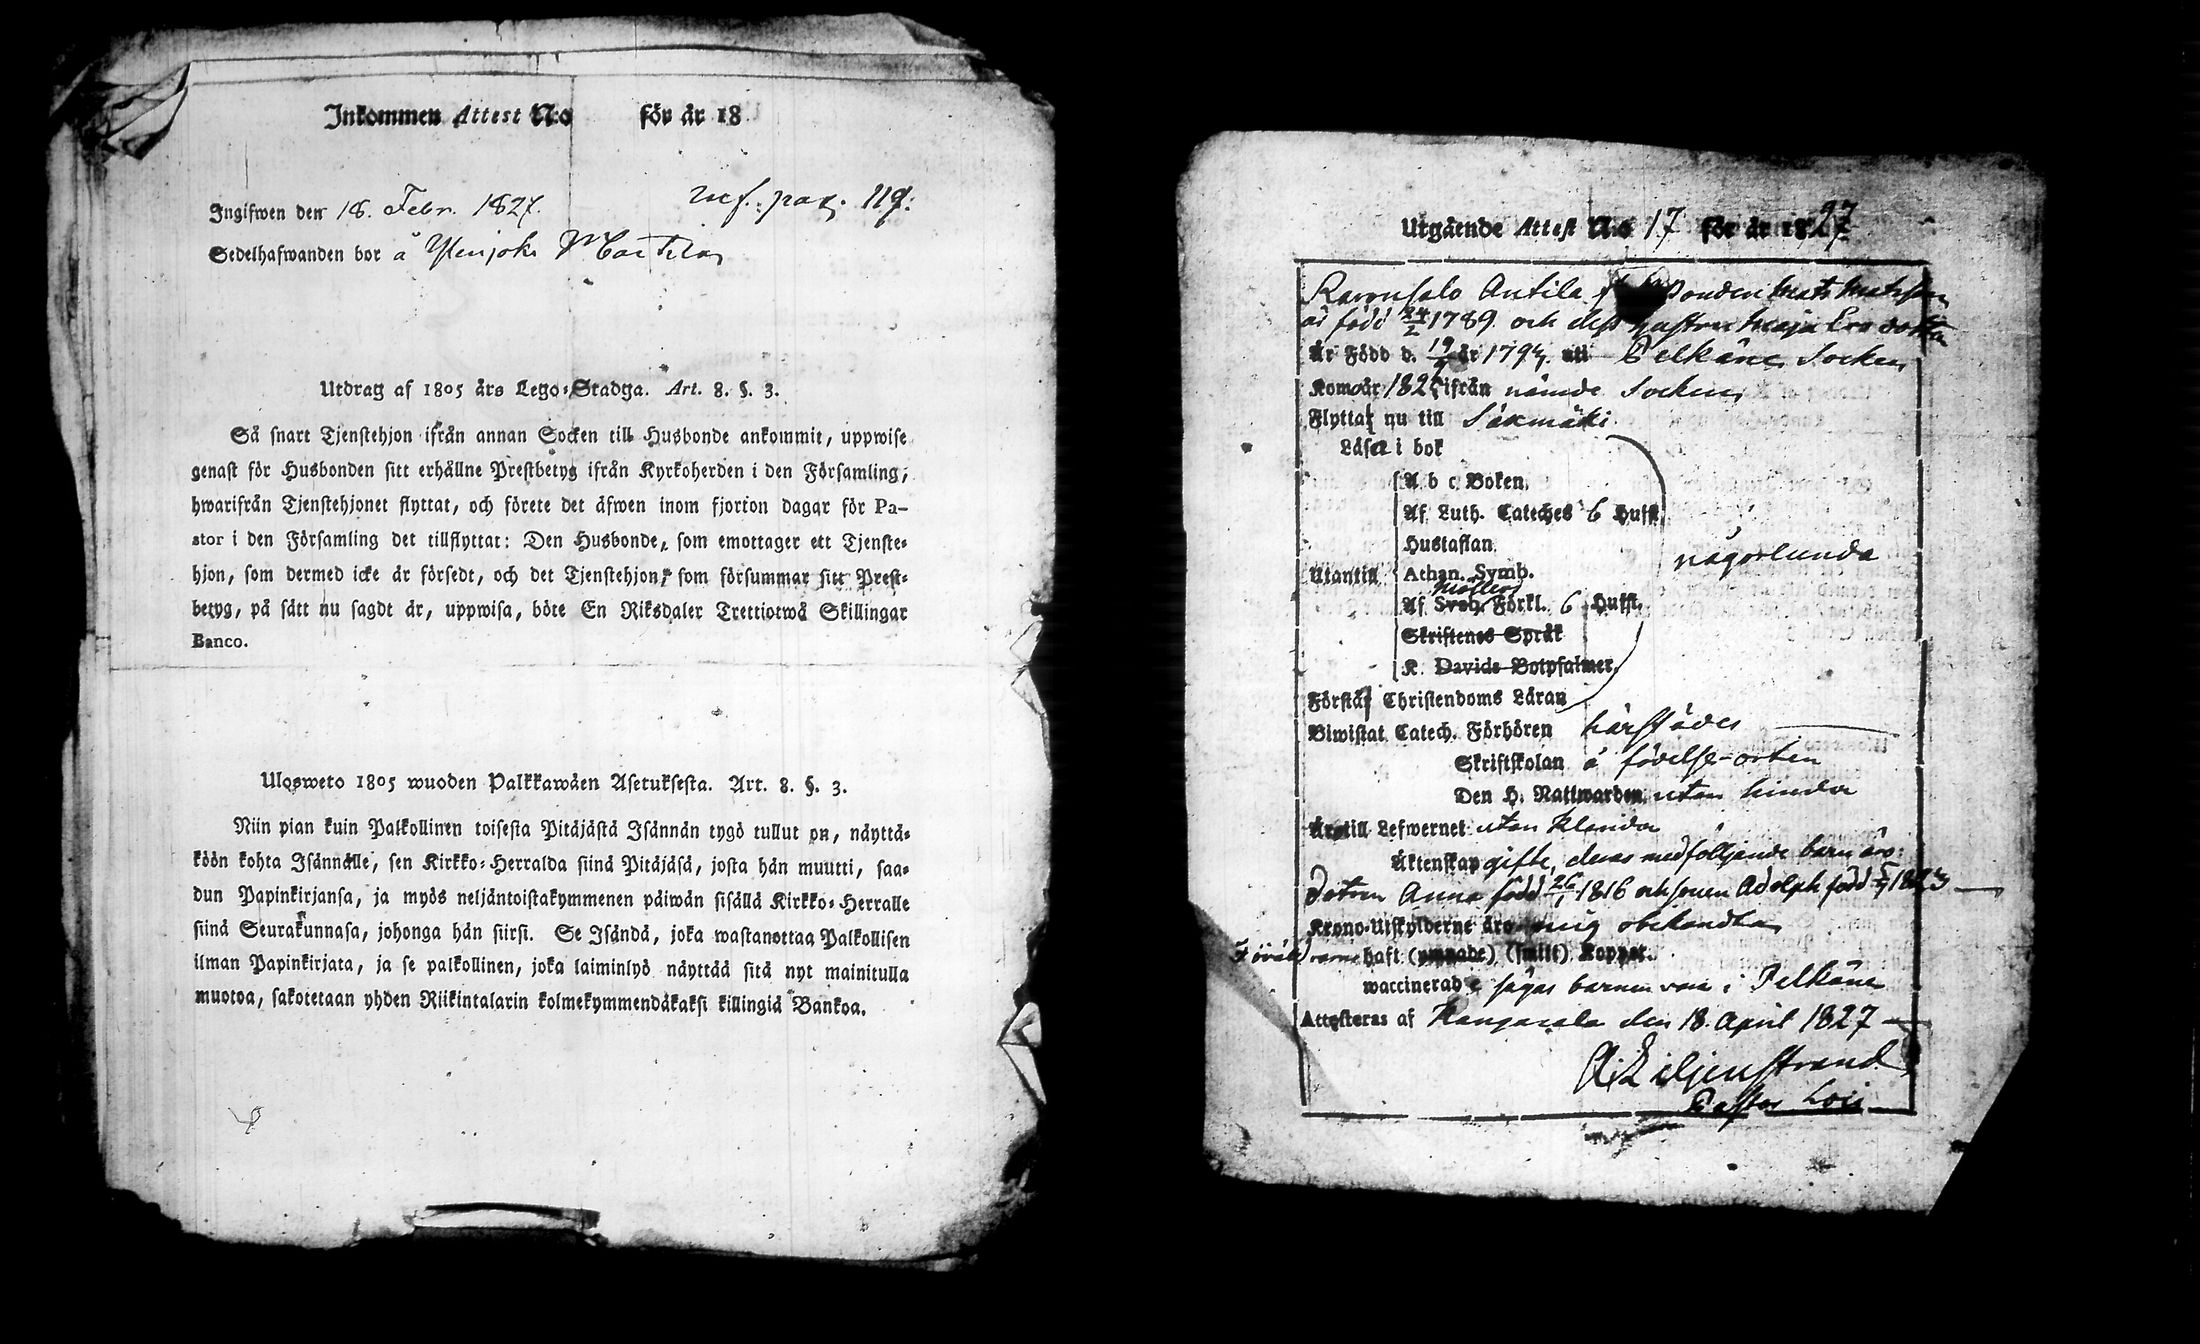 Inkommen Attest N:o för år 18
Ingifwen den 18. Febr. 1827. pag. 119.
Sedelhafwanden bor å
Utdrag af 1805 års Lego-Stadga. Art. 8. §. 3.
Så snart Tjenstehjon ifrån annan Socken till Husbonde ankommit, uppwise
genast för Husbonden sitt erhållne Prestbetyg ifrån Kyrkoherden i den Församling,
hwarifrån Tjenstehjonet flyttat, och förete det äfwen inom fjorton dagar för Pa-
stor i den Församling det tillflyttat: Den Husbonde, som emottager ett Tjenste-
hjon, som dermed icke är försedt, och det Tjenstehjon, som försummar sitt Prest-
betyg, på sätt nu sagdt är, uppwisa, böte En Riksdaler Trettiotwå Skillingar
Banco.
Ulosweto 1805 wuoden Palkkawäen Asetuksesta. Art. 8. §. 3.
Niin pian kuin Palkollinen toisesta Pitäjästä Isännän tygö tullut on, näyttä-
köön kohta Isännälle, sen Kirkko-Herralda siinä Pitäjäsä, josta hän muutti, saa-
dun Papinkirjansa, ja myös neljäntoistakymmenen päiwän sisällä Kirkko-Herralle
siinä Seurakunnasa, johonga hän siirsi. Se Isändä, joka wastanottaa Palkollisen
ilman Papinkirjata, ja se palkollinen, joka laiminlyö näyttää sitä nyt mainitulla
muotoa, sakotetaan yhden Riikintalarin kolmekymmendäkaksi killingiä Bankoa.
Utgående Attest N:o 17 för år 1827
Antila Bonden Mats Matsson
är född 24/2 1789. och dess hustru Maja
Är Född d. 19 år 179 uti Pelkäne Socken
Kom år 182 ifrån nämde Socken
Flyttar nu till Säxmäki
Läser i bok
A b c Boken,
Af Luth. Cateches 6 Hufst.
Hustaflan
Utantill Athan. Symb. någorlunda
Af Sveb. Förkl. 6 Hufst.
Skriftenes Språk
K. Davids Botpsalmer.
Förstår Christendoms Läran
Biwistat Catech. Förhören härstädes
Skriftskolan å födelse-orten
Den H. Nattwarden utan hinder
Är till Lefwernet utan klander
Äktenskap gifte, deras medföljande barn äro:
Dotren Anna född 26/1 1816 och sonen Adolph född
Krono-Utskylderne äro mig obekandta
haft (ympade) (smitt) Koppor.
waccinerade sägas barnen vara i Pelkäne
Attesteras af Kangasala den 18. April 1827
A: Liljenstrand
Pastor Loci